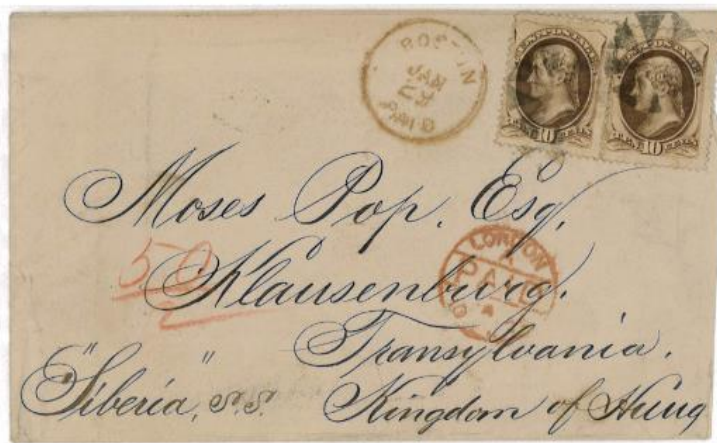 BOSTON
JAN
PAID
10
10
Moses Pop. Esq.
50
LONDON
PAID
Klausenburg.
Transylvania.
"Siberia," S.S.
Kingdom of Hung